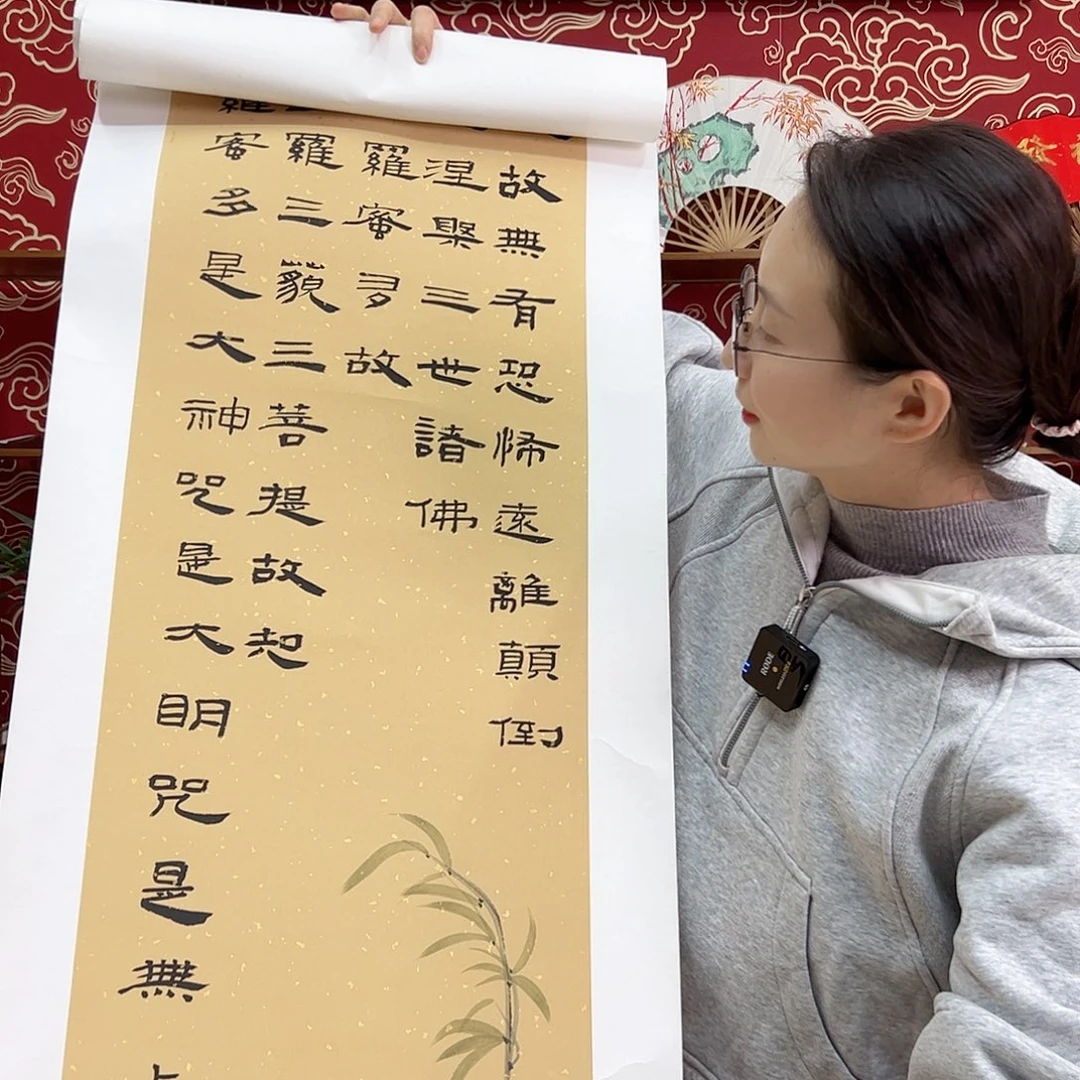 故無有恐怖遠離顛倒
涅槃三世諸佛
羅蜜多故
羅三藐三菩提故知
蜜多是大神咒是大明咒是無
RODE